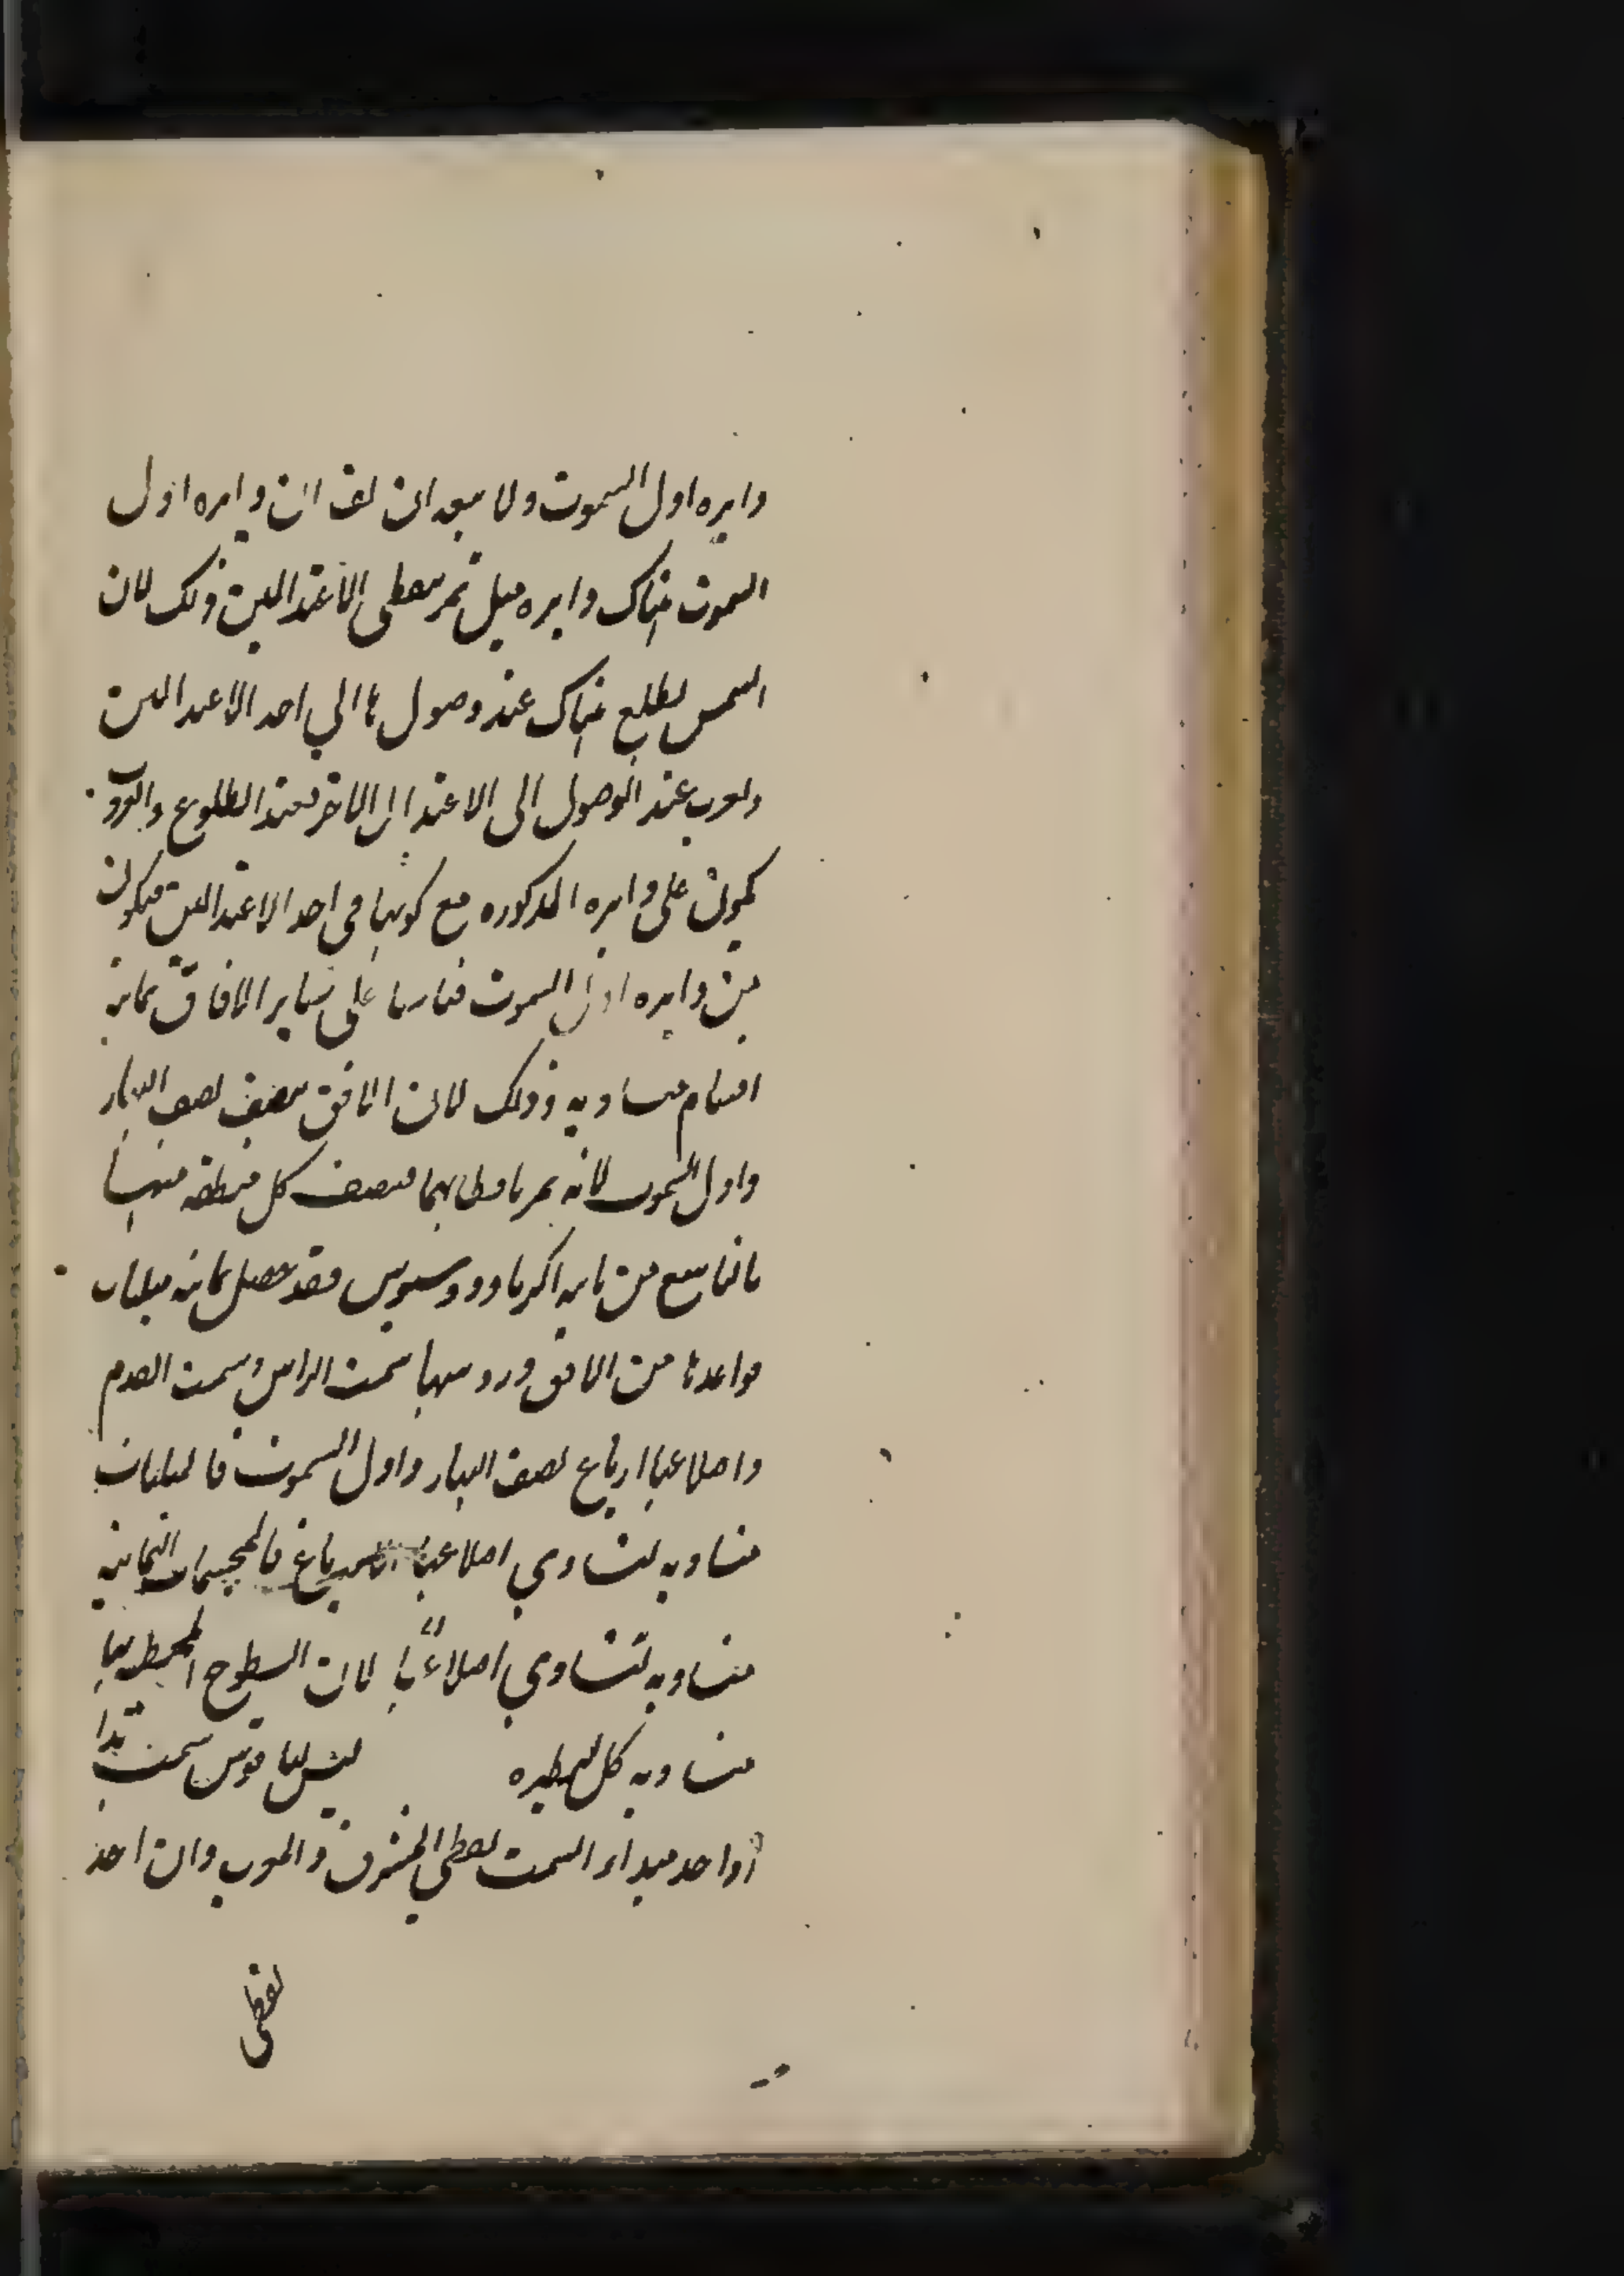 دايره اول السموت ولا يبعد ان يقال ان دايره اول
السموت هناك دايره ميل تمر بنقطتى الاعتدالين وذلك لان
الشمس يطلع هناك عند وصولها الي احد الاعتدالين
وتغرب عند الوصول الى الاعتدال الاخر فعند الطلوع والغروب
يكون على دايره المذكوره مع كونها فى احد الاعتدالين فيكون
من دايره اول السموت على ساير الافاق ثمانيه
اقسام متساويه وذلك لان الافق ينصف نصف النهار
واول السموت لانه يمر باقطابهما فينصف كل منطقه منهما
بالتاسع من ثانيه اكر ثاوذوسيوس فقد حصل ثمانيه مثلثات
قواعدها من الافق وروسها سمت الراس وسمت القدم
واضلاعها ارباع نصف النهار واول السموت فالمثلثات
متساويه لتساوي اضلاعها فالمجسمات الثمانيه
متساويه لتساوي اضلاعها لان السطوح المحيطه بها
متساويه كل لنظيره ليس لها قوس سمت هذا
اذا احد مبداء السمت نقطتي المشرق والمغرب وان احد
نقطتى